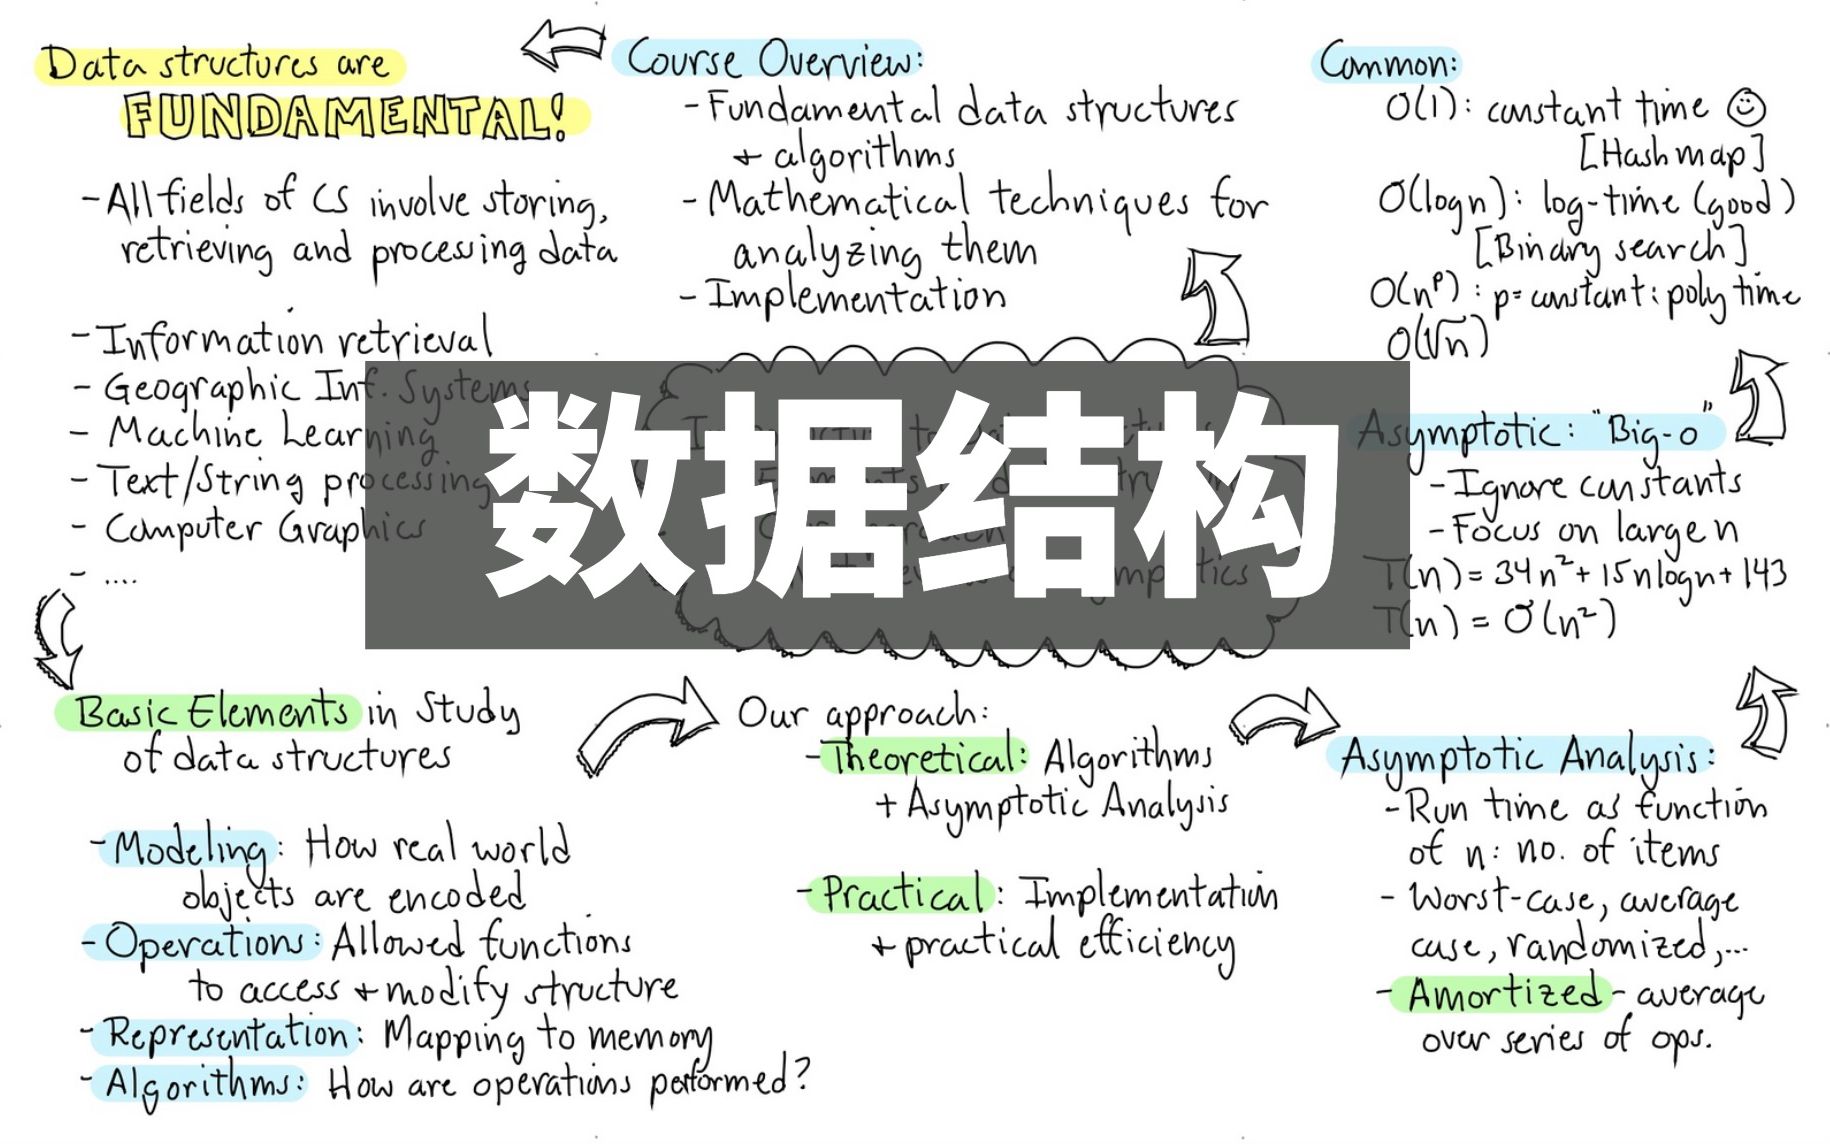 Data structures are
FUNDAMENTAL!
- All fields of CS involve storing,
retrieving and processing data
- Information retrieval
- Geographic Inf. Systems
- Machine Learning
- Text/String processing
- Computer Graphics
- ....
Course Overview:
- Fundamental data structures
+ algorithms
- Mathematical techniques for
analyzing them
- Implementation
数据结构
Basic Elements in Study
of data structures
- Modeling: How real world
objects are encoded
- Operations: Allowed functions
to access + modify structure
- Representation: Mapping to memory
- Algorithms: How are operations performed?
Our approach:
- Theoretical: Algorithms
+ Asymptotic Analysis
- Practical: Implementation
+ practical efficiency
Asymptotic Analysis:
- Run time as function
of n: no. of items
- Worst-case, average
case, randomized,...
- Amortized - average
over series of ops.
Asymptotic: "Big-O"
- Ignore constants
- Focus on large n
T(n) = 34n²+15nlogn+143
T(n) = O(n²)
Common:
O(1): constant time ☺
[Hash map]
O(logn): log-time (good)
[Binary search]
O(nᵖ): p=constant: poly time
O(√n)